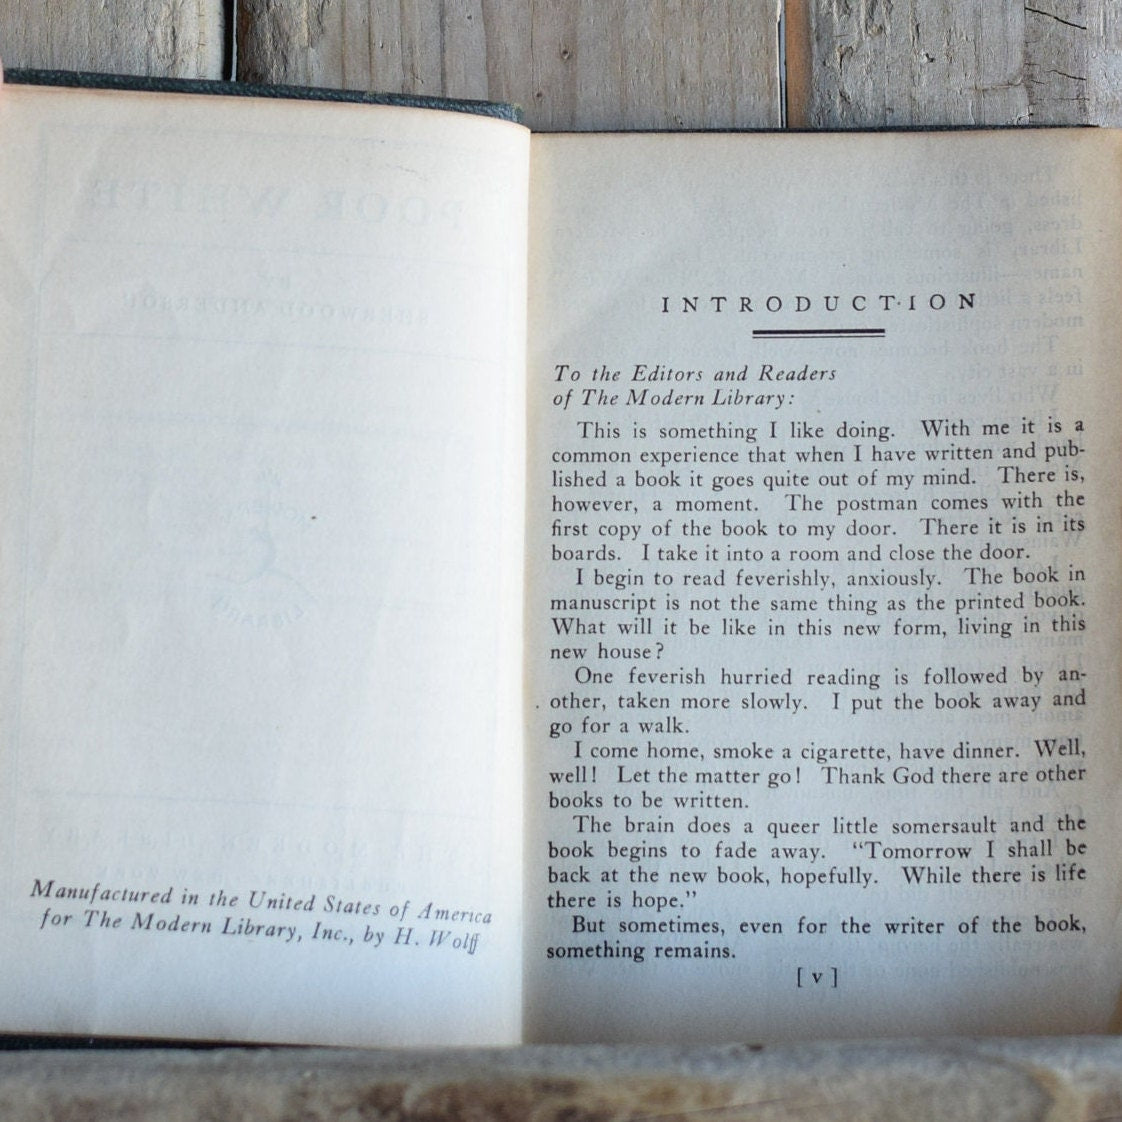 Manufactured in the United States of America
for The Modern Library, Inc., by H. Wolff
INTRODUCTION
To the Editors and Readers
of The Modern Library:
This is something I like doing. With me it is a
common experience that when I have written and pub-
lished a book it goes quite out of my mind. There is,
however, a moment. The postman comes with the
first copy of the book to my door. There it is in its
boards. I take it into a room and close the door.
I begin to read feverishly, anxiously. The book in
manuscript is not the same thing as the printed book.
What will it be like in this new form, living in this
new house?
One feverish hurried reading is followed by an-
other, taken more slowly. I put the book away and
go for a walk.
I come home, smoke a cigarette, have dinner. Well,
well! Let the matter go! Thank God there are other
books to be written.
The brain does a queer little somersault and the
book begins to fade away. "Tomorrow I shall be
back at the new book, hopefully. While there is life
there is hope."
But sometimes, even for the writer of the book,
something remains.
[ v ]